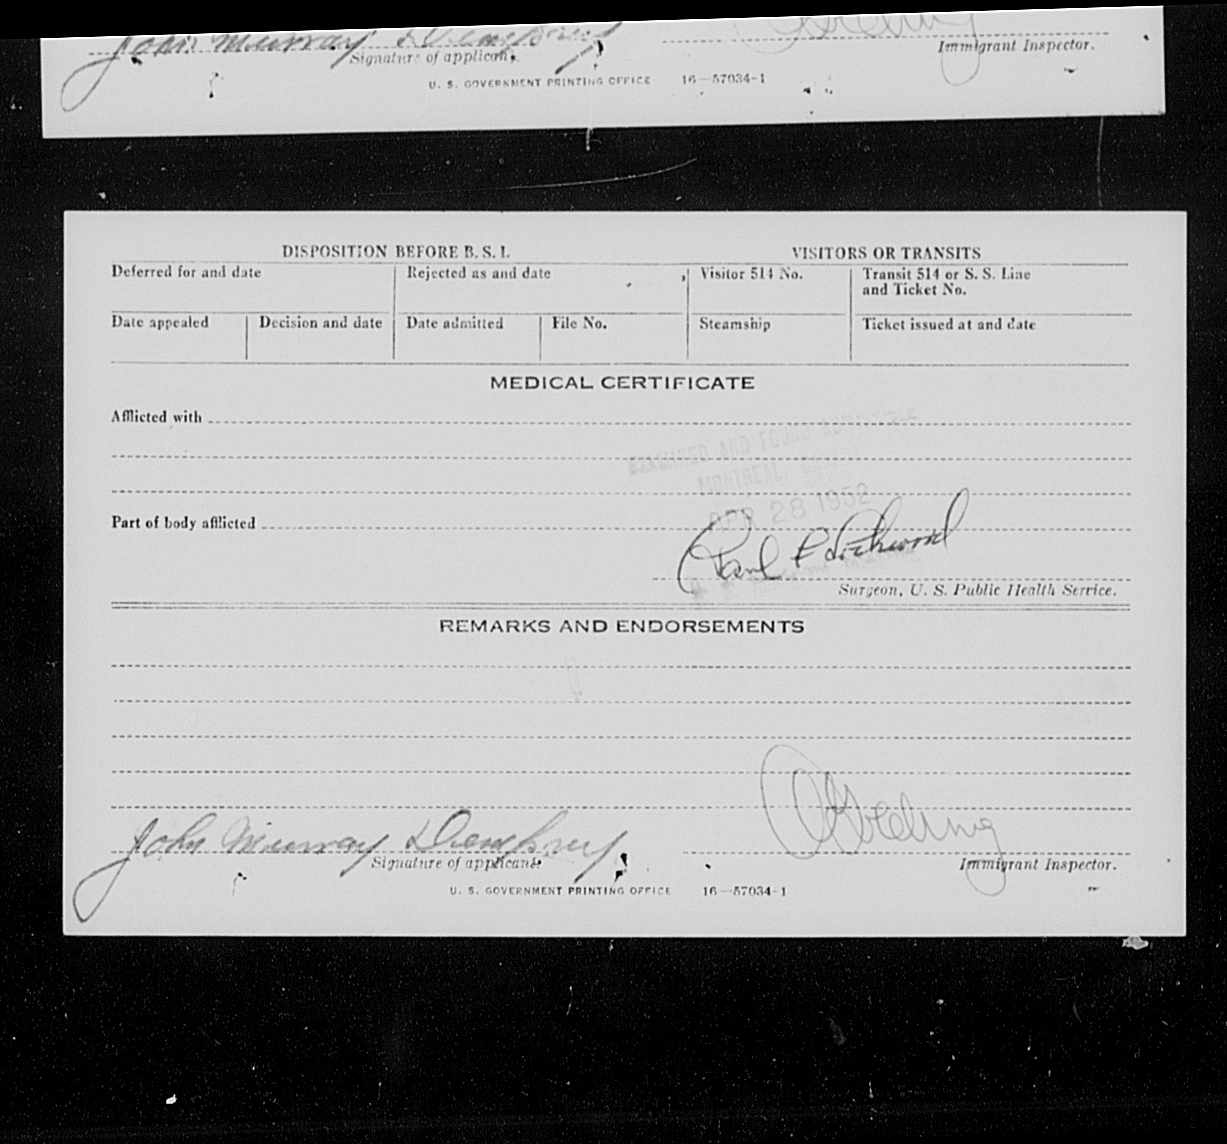 John Murray Dempsey
Signature of applicant.
Immigrant Inspector.
U. S. GOVERNMENT PRINTING OFFICE 16—57034-1
DISPOSITION BEFORE B. S. I. VISITORS OR TRANSITS
Deferred for and date Rejected as and date Visitor 514 No. Transit 514 or S. S. Line
and Ticket No.
Date appealed Decision and date Date admitted File No. Steamship Ticket issued at and date
MEDICAL CERTIFICATE
Afflicted with
EXAMINED AND FOUND
MONTREAL
Part of body afflicted APR 28 1952
Paul
Surgeon, U. S. Public Health Service.
REMARKS AND ENDORSEMENTS
John Murray Dempsey
Signature of applicant.
Immigrant Inspector.
U. S. GOVERNMENT PRINTING OFFICE 16—57034-1